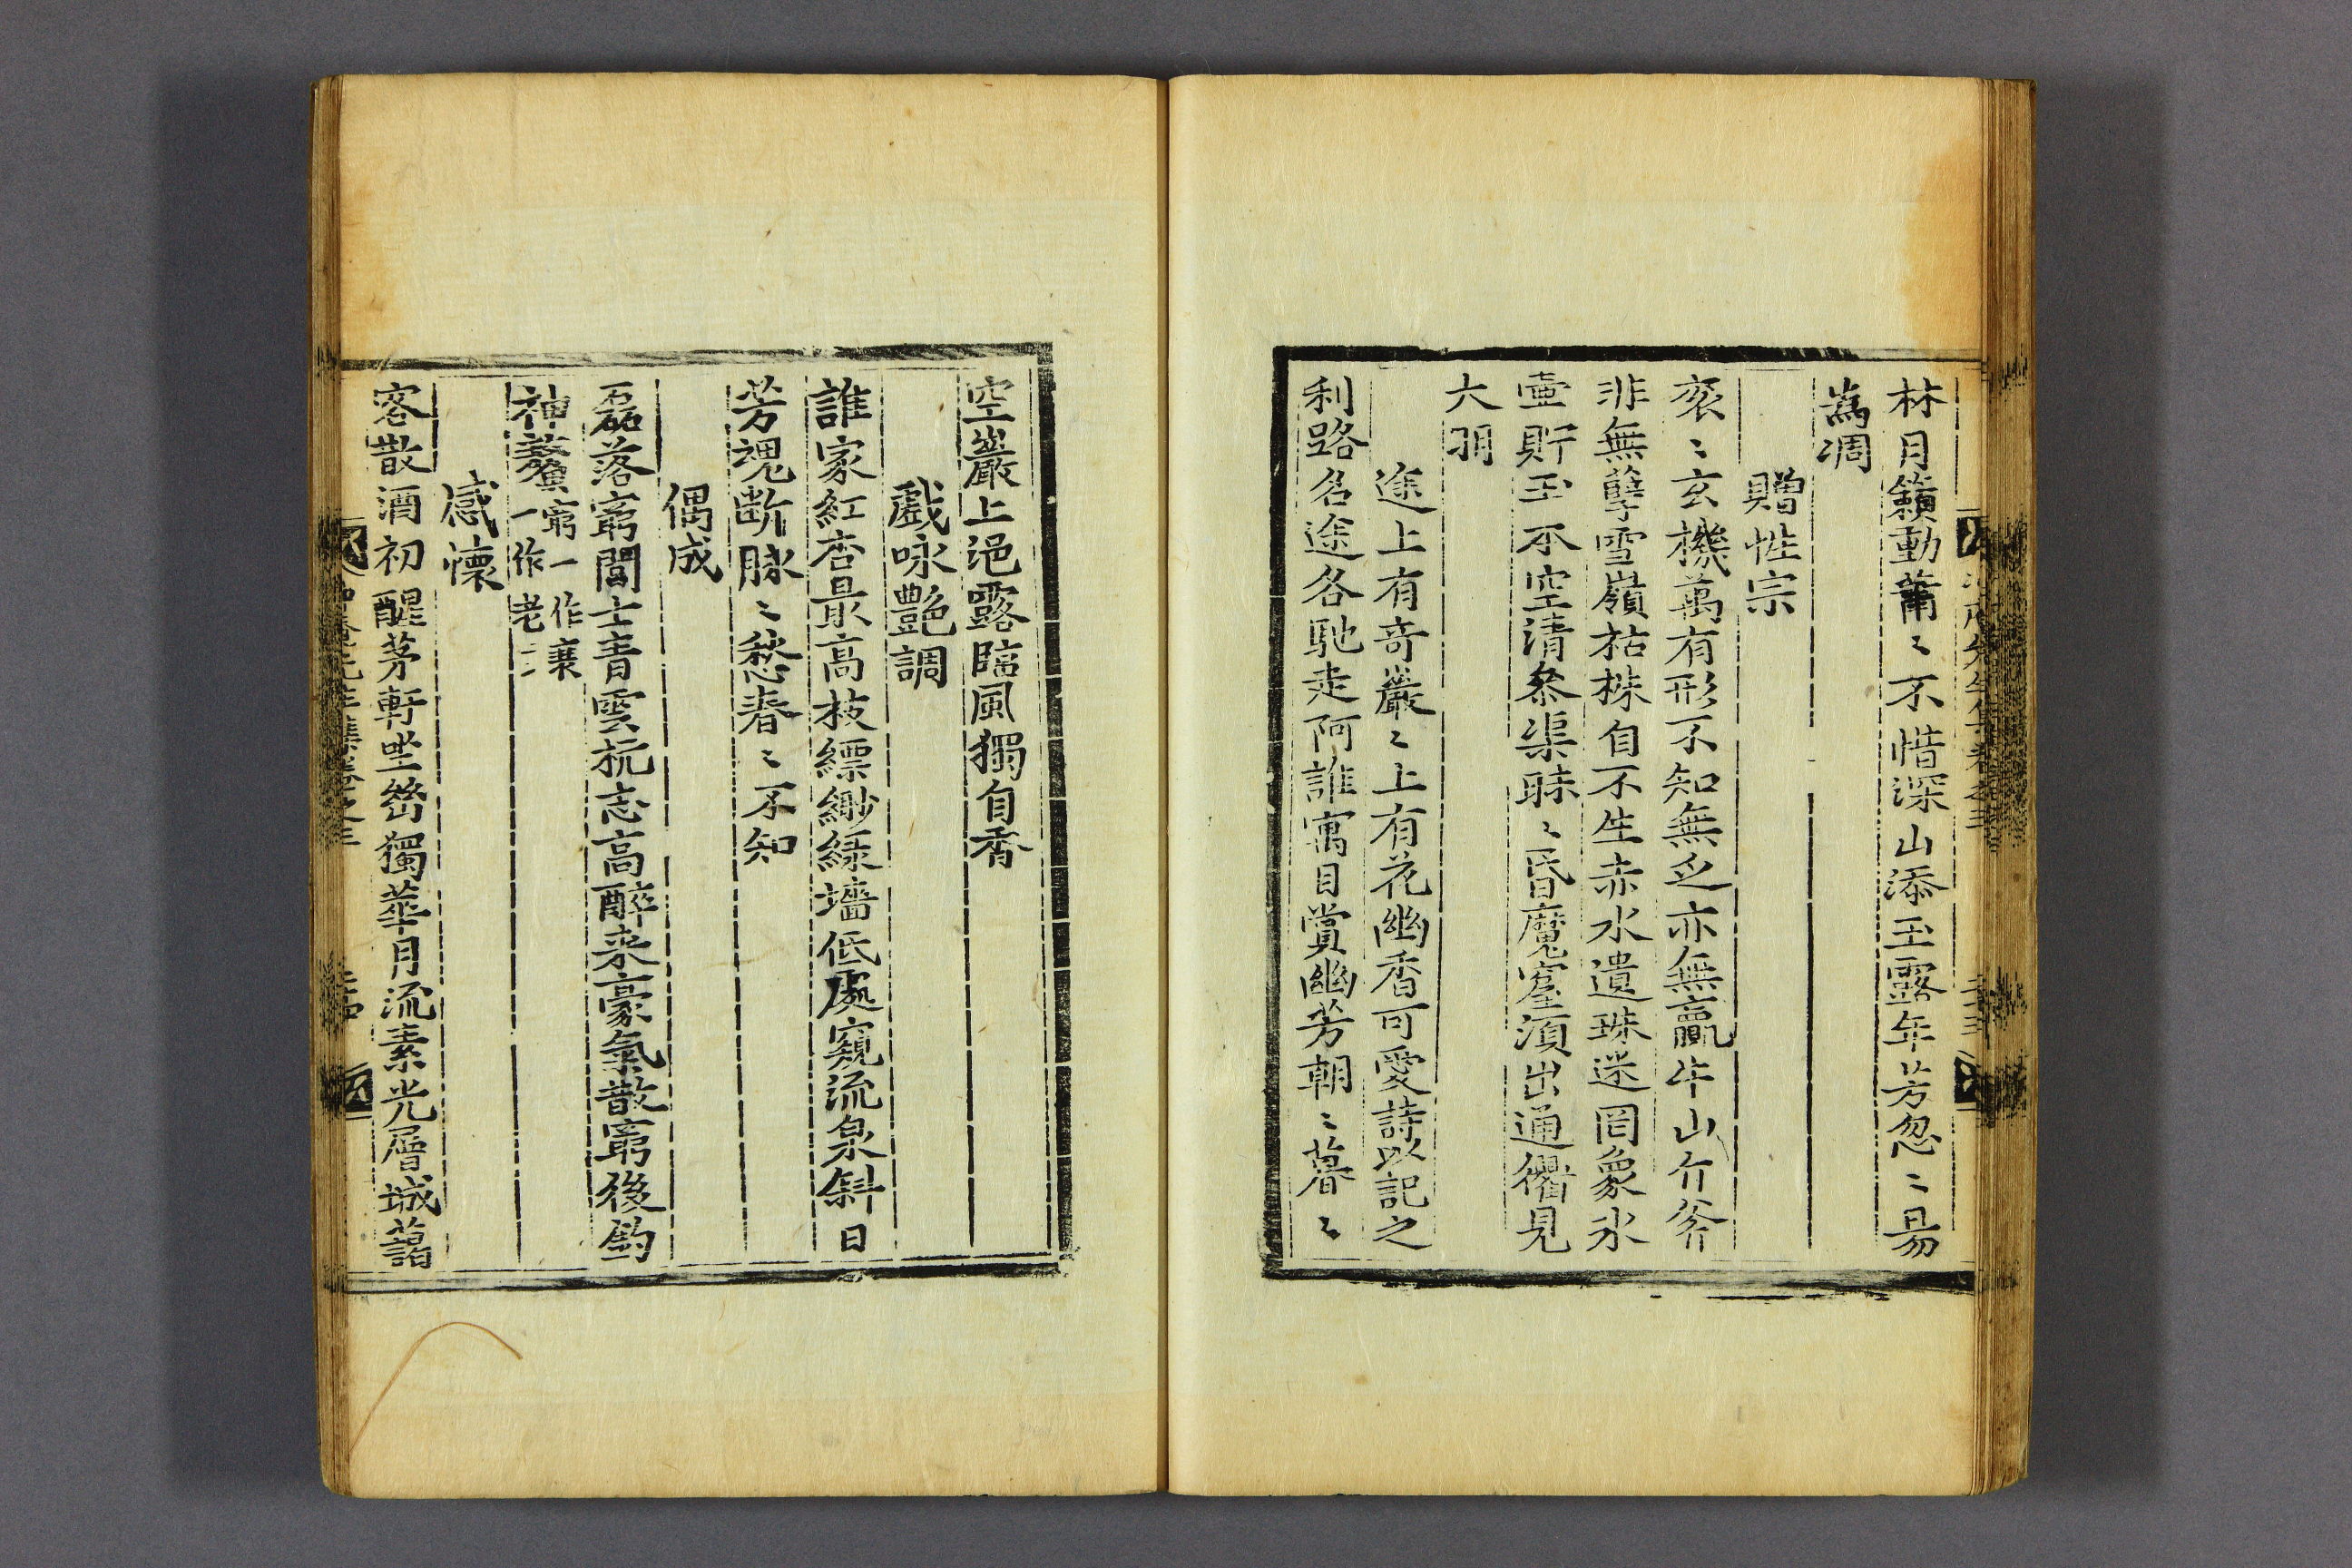 林月籟動蕭〻不惜深山添玉露年芳忽〻易
為凋
贈性宗
袞〻玄機萬有形不知無乏亦無贏牛山斤斧
非無孽雪嶺枯株自不生赤水遺珠迷罔象氷
壷貯玉不空清叅渠眛〻昏魔窟湏出通衢見
大明
途上有竒巖〻上有花幽香可愛詩以記之
利路名途各馳走阿誰寓目賞幽芳朝〻暮〻
空巖上浥露臨風獨自香
戯咏艶調
誰家紅杏最高枝縹緲緑墻低處窺流泉斜日
芳魂斷脉〻愁春〻不知
偶成
磊落窮閻士青雲抗志高醉来豪氣散窮後釣
神鰲窮一作衰
一作老
感懐
客散酒初醒茅軒坐
獨華月流素光層城藹